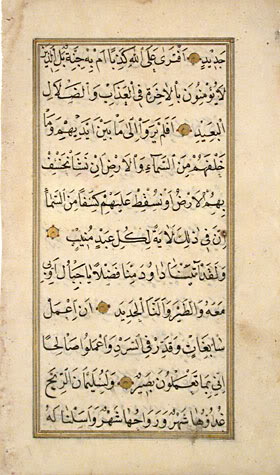 جَدِيدٍ اَفْتَرٰى عَلَى اللّٰهِ كَذِبًا اَمْ بِهِ جِنَّةٌ بَلِ الَّذِينَ
لَا يُؤْمِنُونَ بِالْاٰخِرَةِ فِي الْعَذَابِ وَالضَّلَالِ
الْبَعِيدِ اَفَلَمْ يَرَوْا اِلٰى مَا بَيْنَ اَيْدِيهِمْ وَمَا
خَلْفَهُمْ مِنَ السَّمَاءِ وَالْاَرْضِ اِنْ نَشَأْ نَخْسِفْ
بِهِمُ الْاَرْضَ اَوْ نُسْقِطْ عَلَيْهِمْ كِسَفًا مِنَ السَّمَاءِ
اِنَّ فِي ذٰلِكَ لَاٰيَةً لِكُلِّ عَبْدٍ مُنِيبٍ
وَلَقَدْ اٰتَيْنَا دَاوُدَ مِنَّا فَضْلًا يَا جِبَالُ اَوِّبِي
مَعَهُ وَالطَّيْرَ وَاَلَنَّا لَهُ الْحَدِيدَ اَنِ اعْمَلْ
سَابِغَاتٍ وَقَدِّرْ فِي السَّرْدِ وَاعْمَلُوا صَالِحًا
اِنِّي بِمَا تَعْمَلُونَ بَصِيرٌ وَلِسُلَيْمَانَ الرِّيحَ
غُدُوُّهَا شَهْرٌ وَرَوَاحُهَا شَهْرٌ وَاَسَلْنَا لَهُ